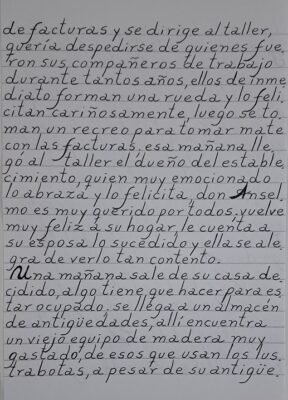 de facturas y se dirige al taller,
quería despedirse de quienes fue
ron sus compañeros de trabajo
durante tantos años, ellos de inme
diato forman una rueda y lo feli
citan cariñosamente, luego se to
man un recreo para tomar mate
con las facturas, esa mañana lle
gó al taller el dueño del estable
cimiento, quien muy emocionado
lo abraza y lo felicita, don Ansel
mo es muy querido por todos, vuelve
muy feliz a su hogar, le cuenta a
su esposa lo sucedido y ella se ale
gra de verlo tan contento.
Una mañana sale de su casa de-
cidido, algo tiene que hacer para es
tar ocupado, se llega a un almacén
de antigüedades, allí encuentra
un viejo equipo de madera muy
gastado, de esos que usan los lus
trabotas, a pesar de su antigüe.